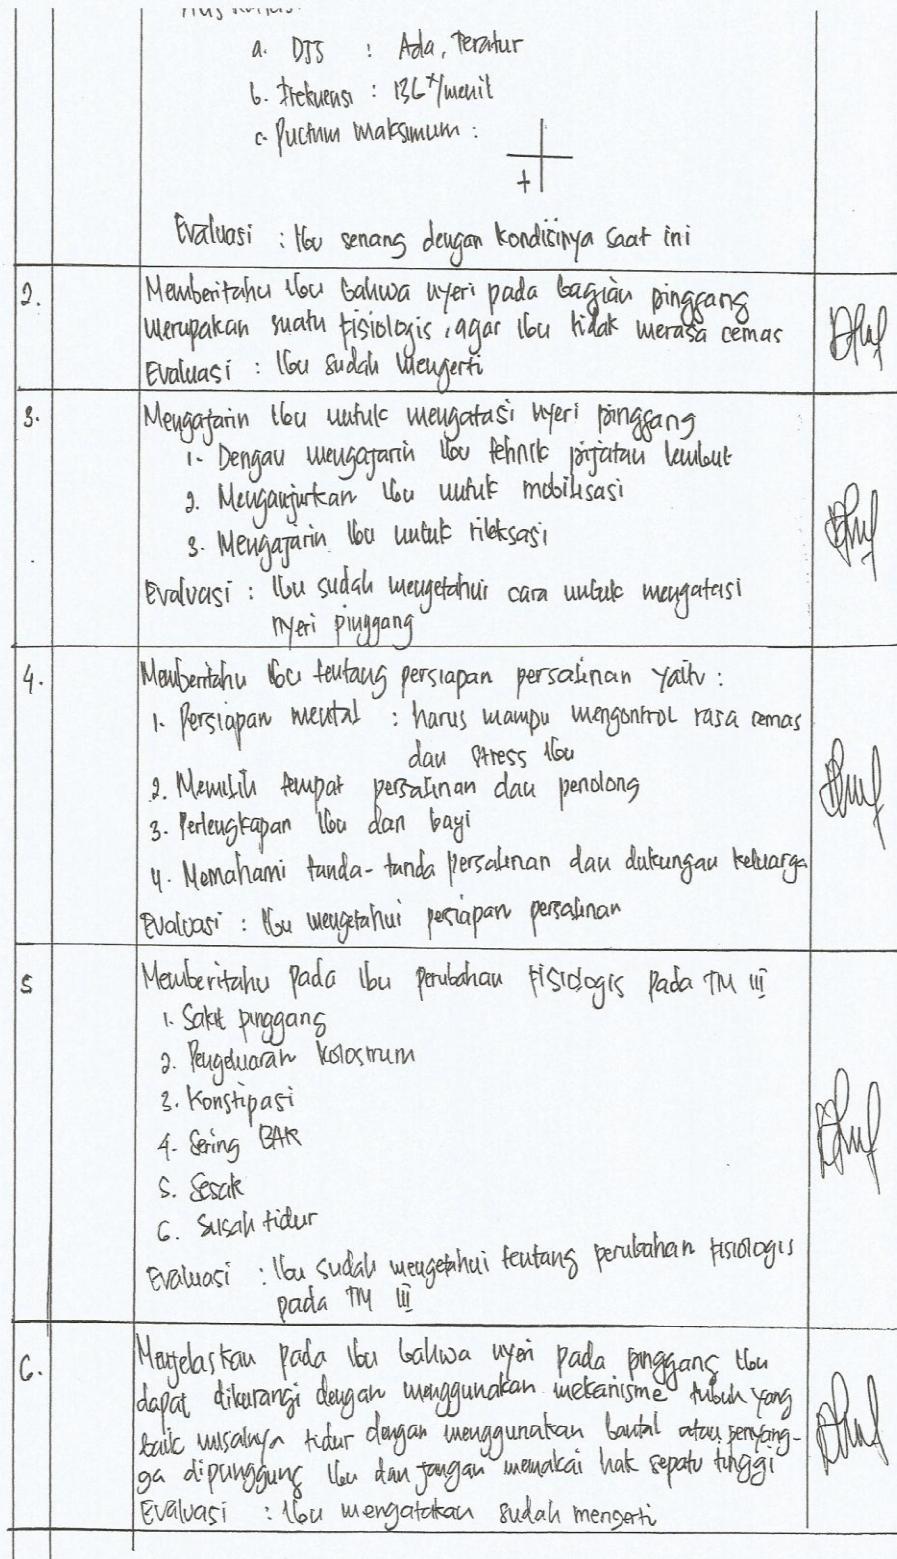 a. DJJ : Ada, Teratur
b. Frekuensi : 136 x/menit
c. Puctum Maksimum :
+
Evaluasi : Ibu senang dengan kondisinya saat ini
2. Memberitahu Ibu bahwa nyeri pada bagian pinggang
merupakan suatu fisiologis, agar Ibu tidak merasa cemas
Evaluasi : Ibu sudah mengerti
3. Mengajarin Ibu untuk mengatasi nyeri pinggang
1. Dengan mengajarin Ibu tehnik pijatan lembut
2. Menganjurkan Ibu untuk mobilisasi
3. Mengajarin Ibu untuk rileksasi
Evaluasi : Ibu sudah mengetahui cara untuk mengatasi
nyeri pinggang
4. Memberitahu Ibu tentang persiapan persalinan yaitu :
1. Persiapan mental : harus mampu mengontrol rasa cemas
dan stress Ibu
2. Memilih tempat persalinan dan penolong
3. Perlengkapan Ibu dan bayi
4. Memahami tanda-tanda persalinan dan dukungan keluarga
Evaluasi : Ibu mengetahui persiapan persalinan
5 Memberitahu pada Ibu perubahan Fisiologis pada TM III
1. Sakit pinggang
2. Pengeluaran kolostrum
3. Konstipasi
4. Sering BAK
5. Sesak
6. Susah tidur
Evaluasi : Ibu sudah mengetahui tentang perubahan fisiologis
pada TM III
6. Menjelaskan pada Ibu bahwa nyeri pada pinggang Ibu
dapat dikurangi dengan menggunakan mekanisme tubuh yang
baik misalnya tidur dengan menggunakan bantal atau penyang-
ga dipunggung Ibu dan jangan memakai hak sepatu tinggi
Evaluasi : Ibu mengatakan sudah mengerti